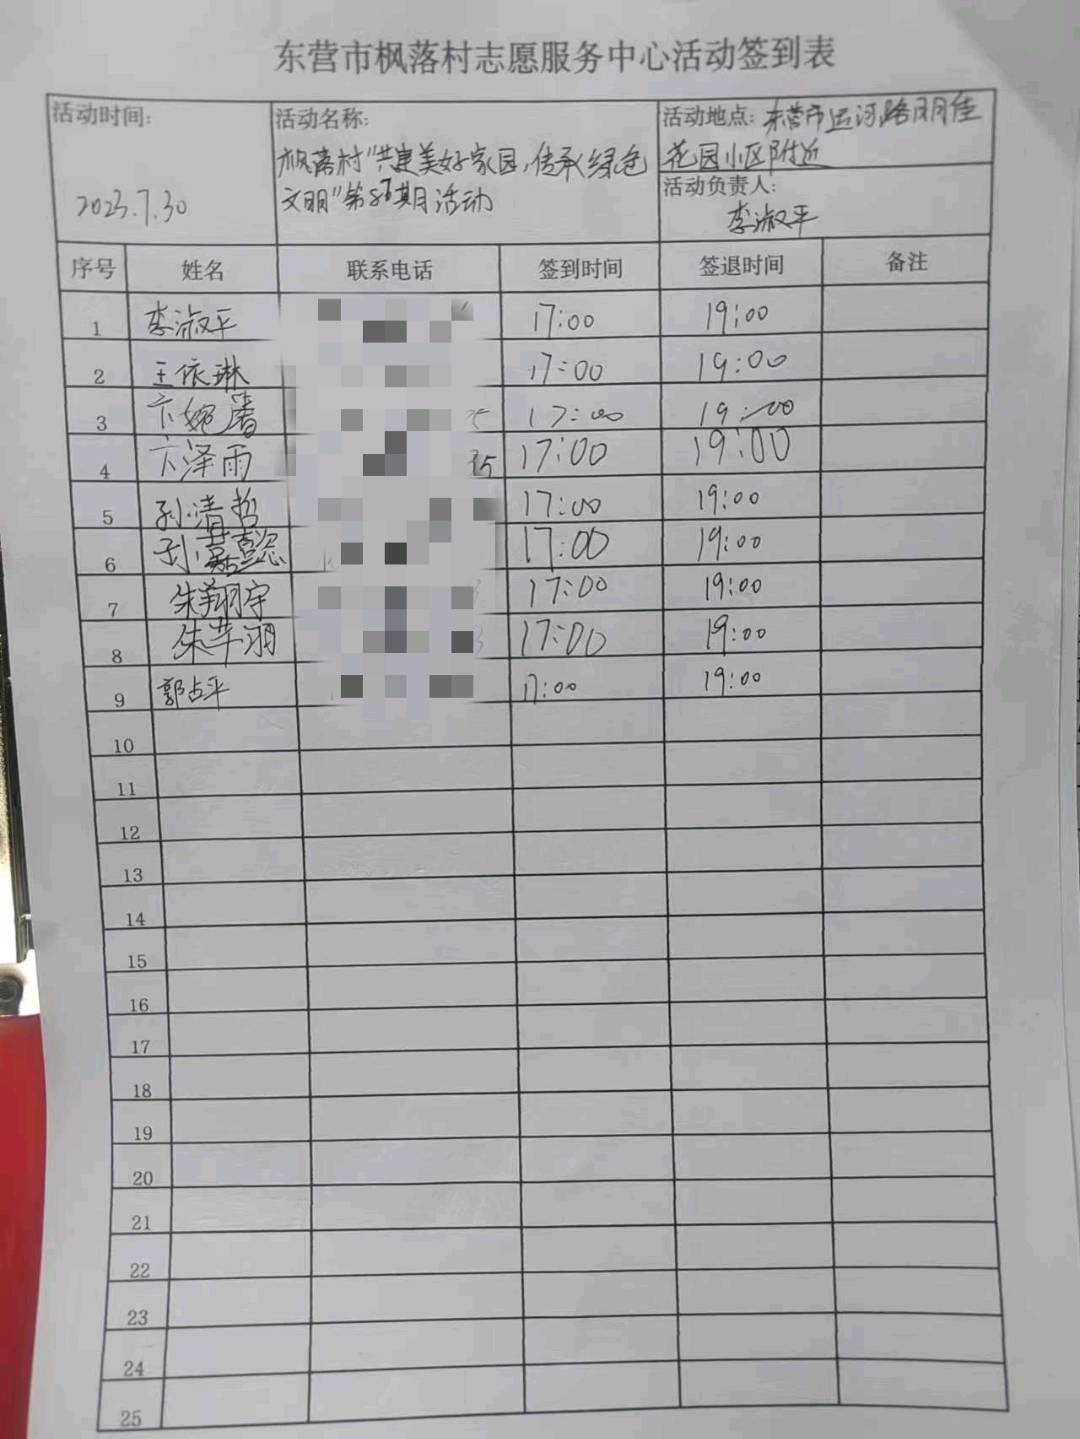 东营市枫落村志愿服务中心活动签到表
活动时间:
2023.7.30
活动名称:
枫落村“共建美好家园,传承绿色
文明”第 期活动
活动地点: 东营市运河路明佳
花园小区附近
活动负责人:
李淑平
序号 姓名 联系电话 签到时间 签退时间 备注
1 李淑平 17:00 19:00
2 王依琳 17:00 19:00
3 卞婉 17:00 19:00
4 卞泽雨 17:00 19:00
5 孙清哲 17:00 19:00
6 孙嘉懿 17:00 19:00
7 朱翔宇 17:00 19:00
8 朱芊羽 17:00 19:00
9 郭占平 17:00 19:00
10
11
12
13
14
15
16
17
18
19
20
21
22
23
24
25